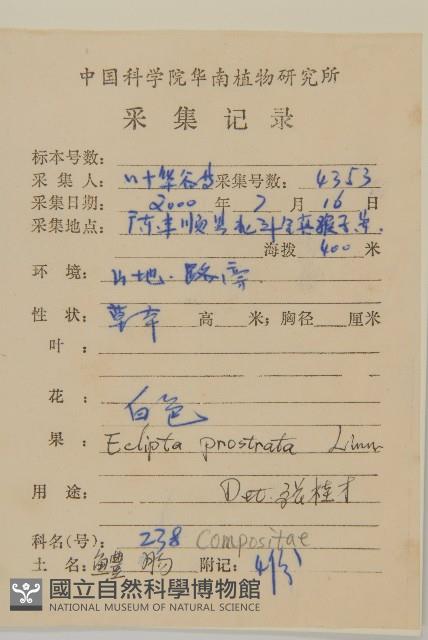 中国科学院华南植物研究所
采集记录
标本号数:
采集人: 叶华谷 采集号数: 4353
采集日期: 2000 年 7 月 16 日
采集地点: 广东丰顺县北斗
海拨 400 米
环境: 山地.路旁
性状: 草本 高 米; 胸径 厘米
叶:
花: 白色
果: Eclipta prostrata Linn
用途: Det. 张桂才
科名(号): 238 Compositae
土名: 鱧肠 附记: 4份
國立自然科學博物館
NATIONAL MUSEUM OF NATURAL SCIENCE